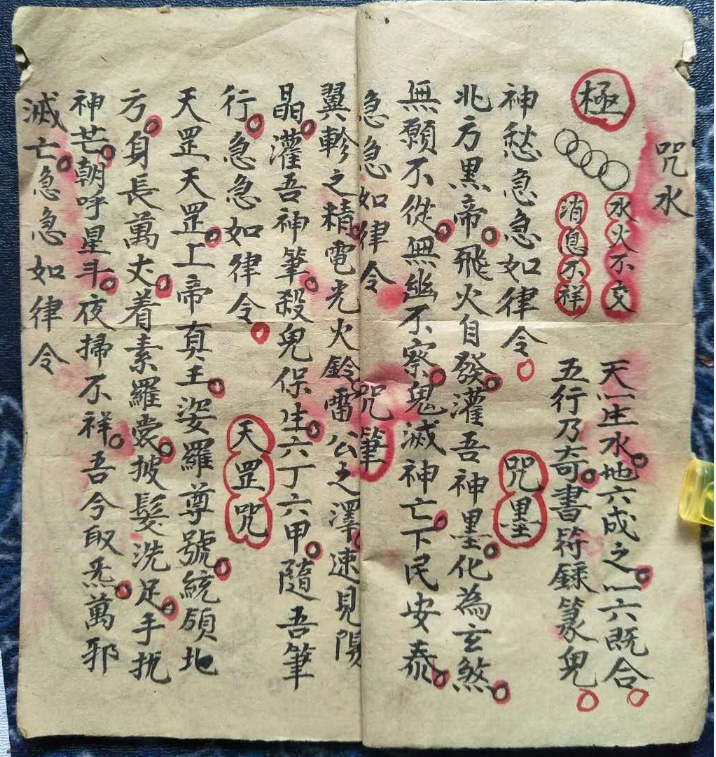 咒水
極
水火不交
消息不祥
天一生水地六成之一六既合
五行乃奇書符錄篆鬼
神愁急急如律令
咒墨
北方黑帝飛火自發灌吾神墨化為玄煞
無願不從無幽不察鬼滅神亡下民安泰
急急如律令
咒筆
翼軫之精電光火鈴雷公之澤速見陽
晶灌吾神筆殺鬼保生六丁六甲隨吾筆
行急急如律令
天罡咒
天罡天罡上帝真王娑羅尊號統領地
方身長萬丈着素羅裳披髮洗足手執
神芒朝呼星斗夜掃不祥吾今取炁萬邪
滅亡急急如律令